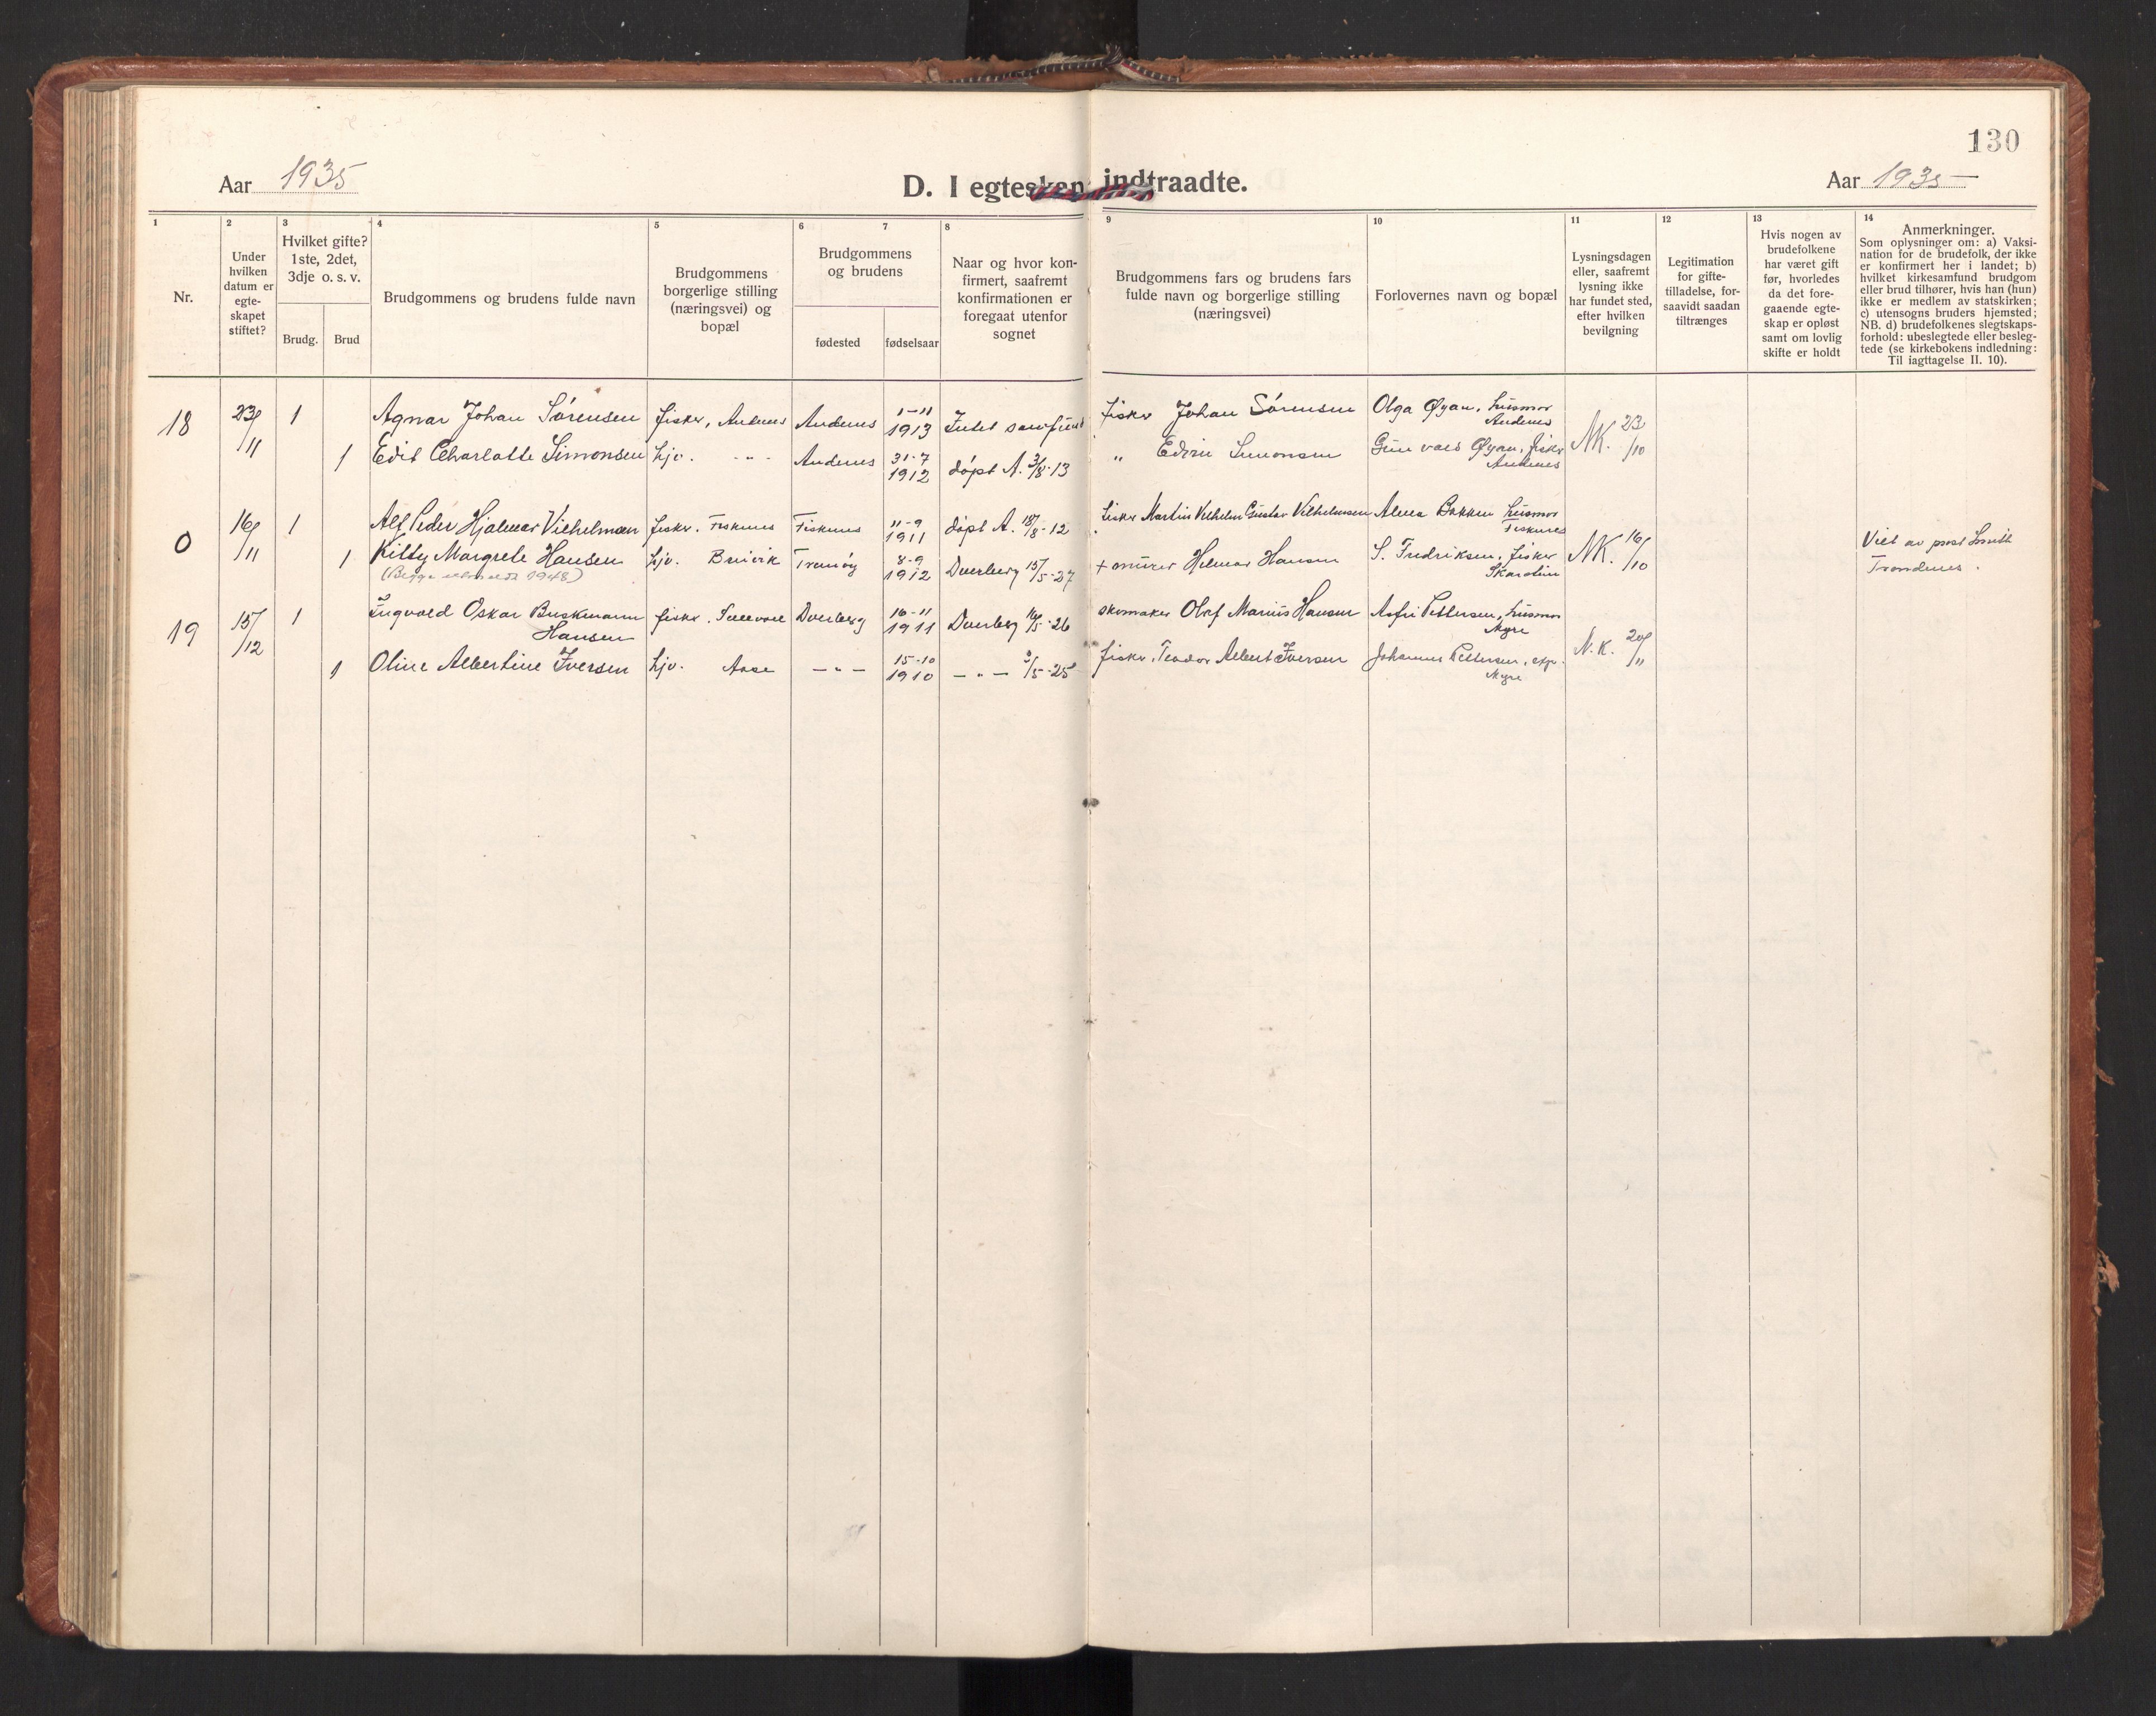 130
Aar 1935
D. I egtesken indtraadte.
Aar 1935
1 2 3 4 5 6 7 8 9 10 11 12 13 14
Nr.
Under
hvilken
datum er
egte-
skapet
stiftet?
Hvilket gifte?
1ste, 2det,
3dje o. s. v.
Brudg. Brud
Brudgommens og brudens fulde navn
Brudgommens
borgerlige stilling
(næringsvei) og
bopæl
Brudgommens
og brudens
fødested fødselsaar
Naar og hvor kon-
firmert, saafremt
konfirmationen er
foregaat utenfor
sognet
Brudgommens fars og brudens fars
fulde navn og borgerlige stilling
(næringsvei)
Forlovernes navn og bopæl
Lysningsdagen
eller, saafremt
lysning ikke
har fundet sted,
efter hvilken
bevilgning
Legitimation
for gifte-
tilladelse, for-
saavidt saadan
tiltrænges
Hvis nogen av
brudefolkene
har været gift
før, hvorledes
da det fore-
gaaende egte-
skap er opløst
samt om lovlig
skifte er holdt
Anmerkninger.
Som oplysninger om: a) Vaksi-
nation for de brudefolk, der ikke
er konfirmert her i landet; b)
hvilket kirkesamfund brudgom
eller brud tilhører, hvis han (hun)
ikke er medlem av statskirken;
c) utensogns bruders hjemsted;
NB. d) brudefolkenes slegtskaps-
forhold: ubeslegtede eller besleg-
tede (se kirkebokens indledning:
Til iagttagelse II. 10).
18 23/11 1 Agnar Johan Sørensen fisker, Andenes Andenes 1-11 1913 Intet samfund fisker Johan Sørensen Olga Øyan, husmor Andenes NK. 23/10
1 Edit Charlotte Simonsen hjv. - " - Andenes 31-7 1912 døpt A. 3/8-13 " Simonsen Øyan, fisker Andenes
0 16/11 1 Alf Peder Hjalmar Vilhelmsen fisker. Fiskenes Fiskenes 11-9 1911 døpt A. 18/8-12 fisker Martin Vilhelm Gustav Vilhelmsen Alma Bakken husmor Fiskenes NK. 16/10 Viet av prost Smith Trondenes.
1 Kitty Margrete Hansen hjv. Breivik Tranøy 8-9 1912 Dverberg 15/5-27 + murer Helmar Hansen S. Fredriksen, fisker Skarstein
(Begge utmeldt 1948)
19 15/12 1 Ingvald Oskar Buskmann fisker. Dverberg 16-11 1911 Dverberg 16/5-26 skomaker Olaf Marius Hansen Pettersen, husmor Myre N.K. 20/11
Hansen
1 Oline Albertine Iversen hjv. Aase - " - 15-10 1910 - " - /5-25 fisker, Teodor Albert Iversen Johannes Pettersen, Myre